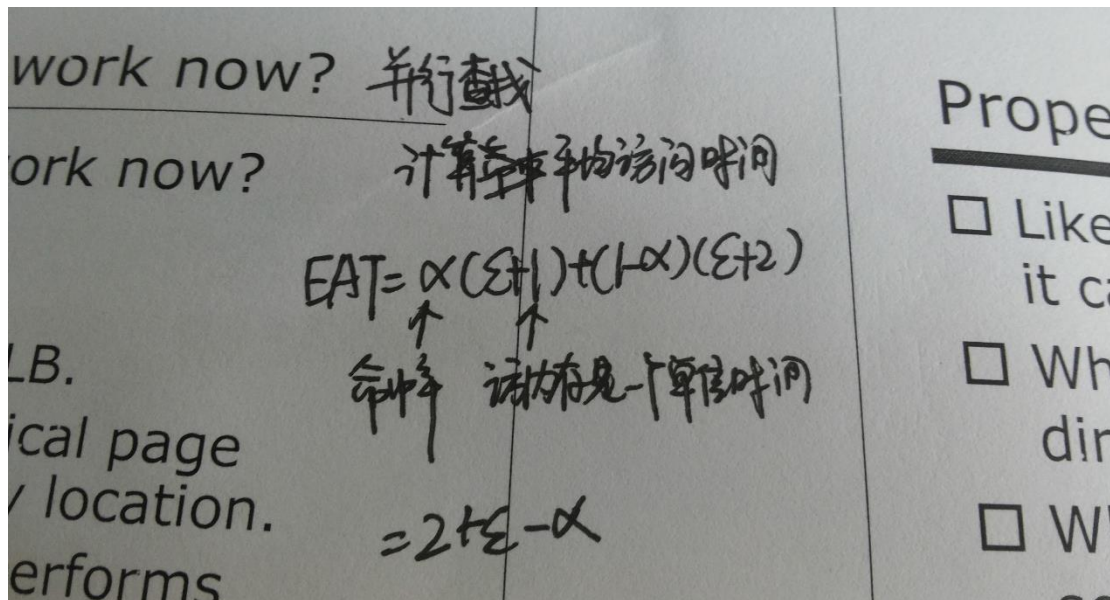 work now? 并行查找
ork now?
计算平均访问时间
EAT=α(ε+1)+(1-α)(ε+2)
↑ ↑
命中率 访内存是一个单位时间
=2+ε-α
LB.
ical page
y location.
erforms
Prope
□ Like
it ca
□ Wh
dir
□ W